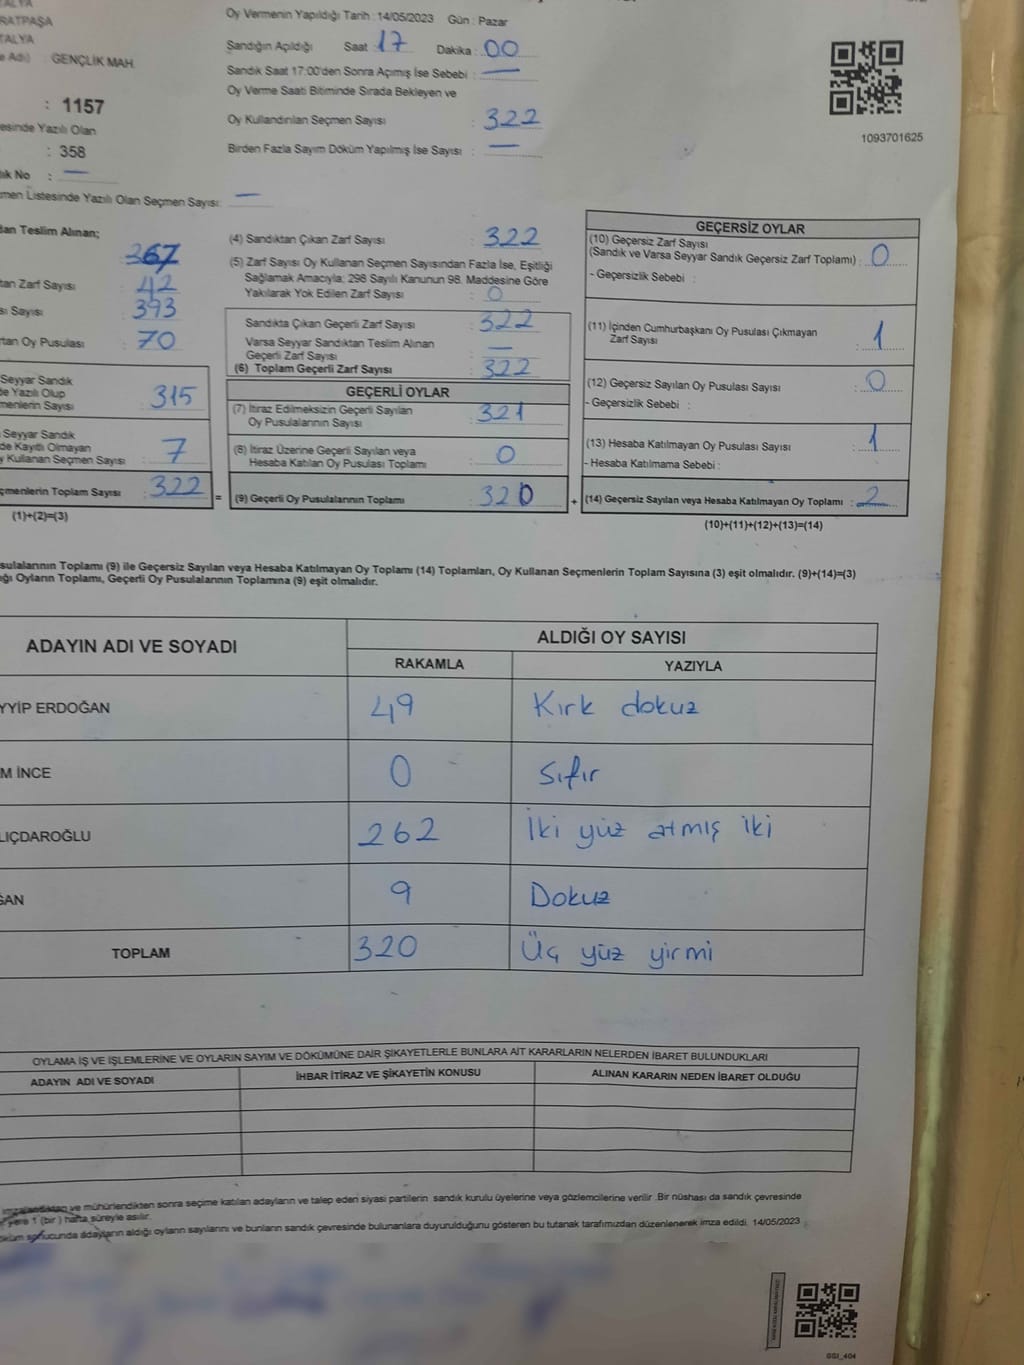 RATPAŞA
TALYA
e Adı) : GENÇLİK MAH.
: 1157
esinde Yazılı Olan
: 358
ık No : —
men Listesinde Yazılı Olan Seçmen Sayısı: —
Oy Vermenin Yapıldığı Tarih : 14/05/2023 Gün : Pazar
Sandığın Açıldığı Saat : 17 Dakika : 00
Sandık Saat 17:00'den Sonra Açımış İse Sebebi : —
Oy Verme Saati Bitiminde Sırada Bekleyen ve
Oy Kullandırılan Seçmen Sayısı : 322
Birden Fazla Sayım Döküm Yapılmış İse Sayısı : —
1093701625
dan Teslim Alınan;
367
tan Zarf Sayısı : 42
sı Sayısı : 393
rtan Oy Pusulası : 70
Seyyar Sandık
de Yazılı Olup
menlerin Sayısı : 315
Seyyar Sandık
de Kayıtlı Olmayan
y Kullanan Seçmen Sayısı : 7
çmenlerin Toplam Sayısı : 322 =
(1)+(2)=(3)
(4) Sandıktan Çıkan Zarf Sayısı : 322
(5) Zarf Sayısı Oy Kullanan Seçmen Sayısından Fazla İse, Eşitliği
Sağlamak Amacıyla; 298 Sayılı Kanunun 98. Maddesine Göre
Yakılarak Yok Edilen Zarf Sayısı : 0
Sandıkta Çıkan Geçerli Zarf Sayısı : 322
Varsa Seyyar Sandıktan Teslim Alınan
Geçerli Zarf Sayısı : —
(6) Toplam Geçerli Zarf Sayısı : 322
GEÇERLİ OYLAR
(7) İtiraz Edilmeksizin Geçerli Sayılan
Oy Pusulalarının Sayısı : 321
(8) İtiraz Üzerine Geçerli Sayılan veya
Hesaba Katılan Oy Pusulası Toplamı : 0
(9) Geçerli Oy Pusulalarının Toplamı : 320 +
GEÇERSİZ OYLAR
(10) Geçersiz Zarf Sayısı
(Sandık ve Varsa Seyyar Sandık Geçersiz Zarf Toplamı) : 0
- Geçersizlik Sebebi :
(11) İçinden Cumhurbaşkanı Oy Pusulası Çıkmayan
Zarf Sayısı : 1
(12) Geçersiz Sayılan Oy Pusulası Sayısı : 0
- Geçersizlik Sebebi :
(13) Hesaba Katılmayan Oy Pusulası Sayısı : 1
- Hesaba Katılmama Sebebi :
(14) Geçersiz Sayılan veya Hesaba Katılmayan Oy Toplamı : 2
(10)+(11)+(12)+(13)=(14)
sulalarının Toplamı (9) ile Geçersiz Sayılan veya Hesaba Katılmayan Oy Toplamı (14) Toplamları, Oy Kullanan Seçmenlerin Toplam Sayısına (3) eşit olmalıdır. (9)+(14)=(3)
ığı Oyların Toplamı, Geçerli Oy Pusulalarının Toplamına (9) eşit olmalıdır.
ADAYIN ADI VE SOYADI ALDIĞI OY SAYISI
RAKAMLA YAZIYLA
YYİP ERDOĞAN 49 Kırk dokuz
M İNCE 0 Sıfır
LIÇDAROĞLU 262 İki yüz atmış iki
ĞAN 9 Dokuz
TOPLAM 320 Üç yüz yirmi
OYLAMA İŞ VE İŞLEMLERİNE VE OYLARIN SAYIM VE DÖKÜMÜNE DAİR ŞİKAYETLERLE BUNLARA AİT KARARLARIN NELERDEN İBARET BULUNDUKLARI
ADAYIN ADI VE SOYADI İHBAR İTİRAZ VE ŞİKAYETİN KONUSU ALINAN KARARIN NEDEN İBARET OLDUĞU
imzalandıktan ve mühürlendikten sonra seçime katılan adayların ve talep eden siyasi partilerin sandık kurulu üyelerine veya gözlemcilerine verilir .Bir nüshası da sandık çevresinde
yere 1 (bir ) hafta süreyle asılır.
öküm sonucunda adayların aldığı oyların sayılarını ve bunların sandık çevresinde bulunanlara duyurulduğunu gösteren bu tutanak tarafımızdan düzenlenerek imza edildi. 14/05/2023
GSI_404